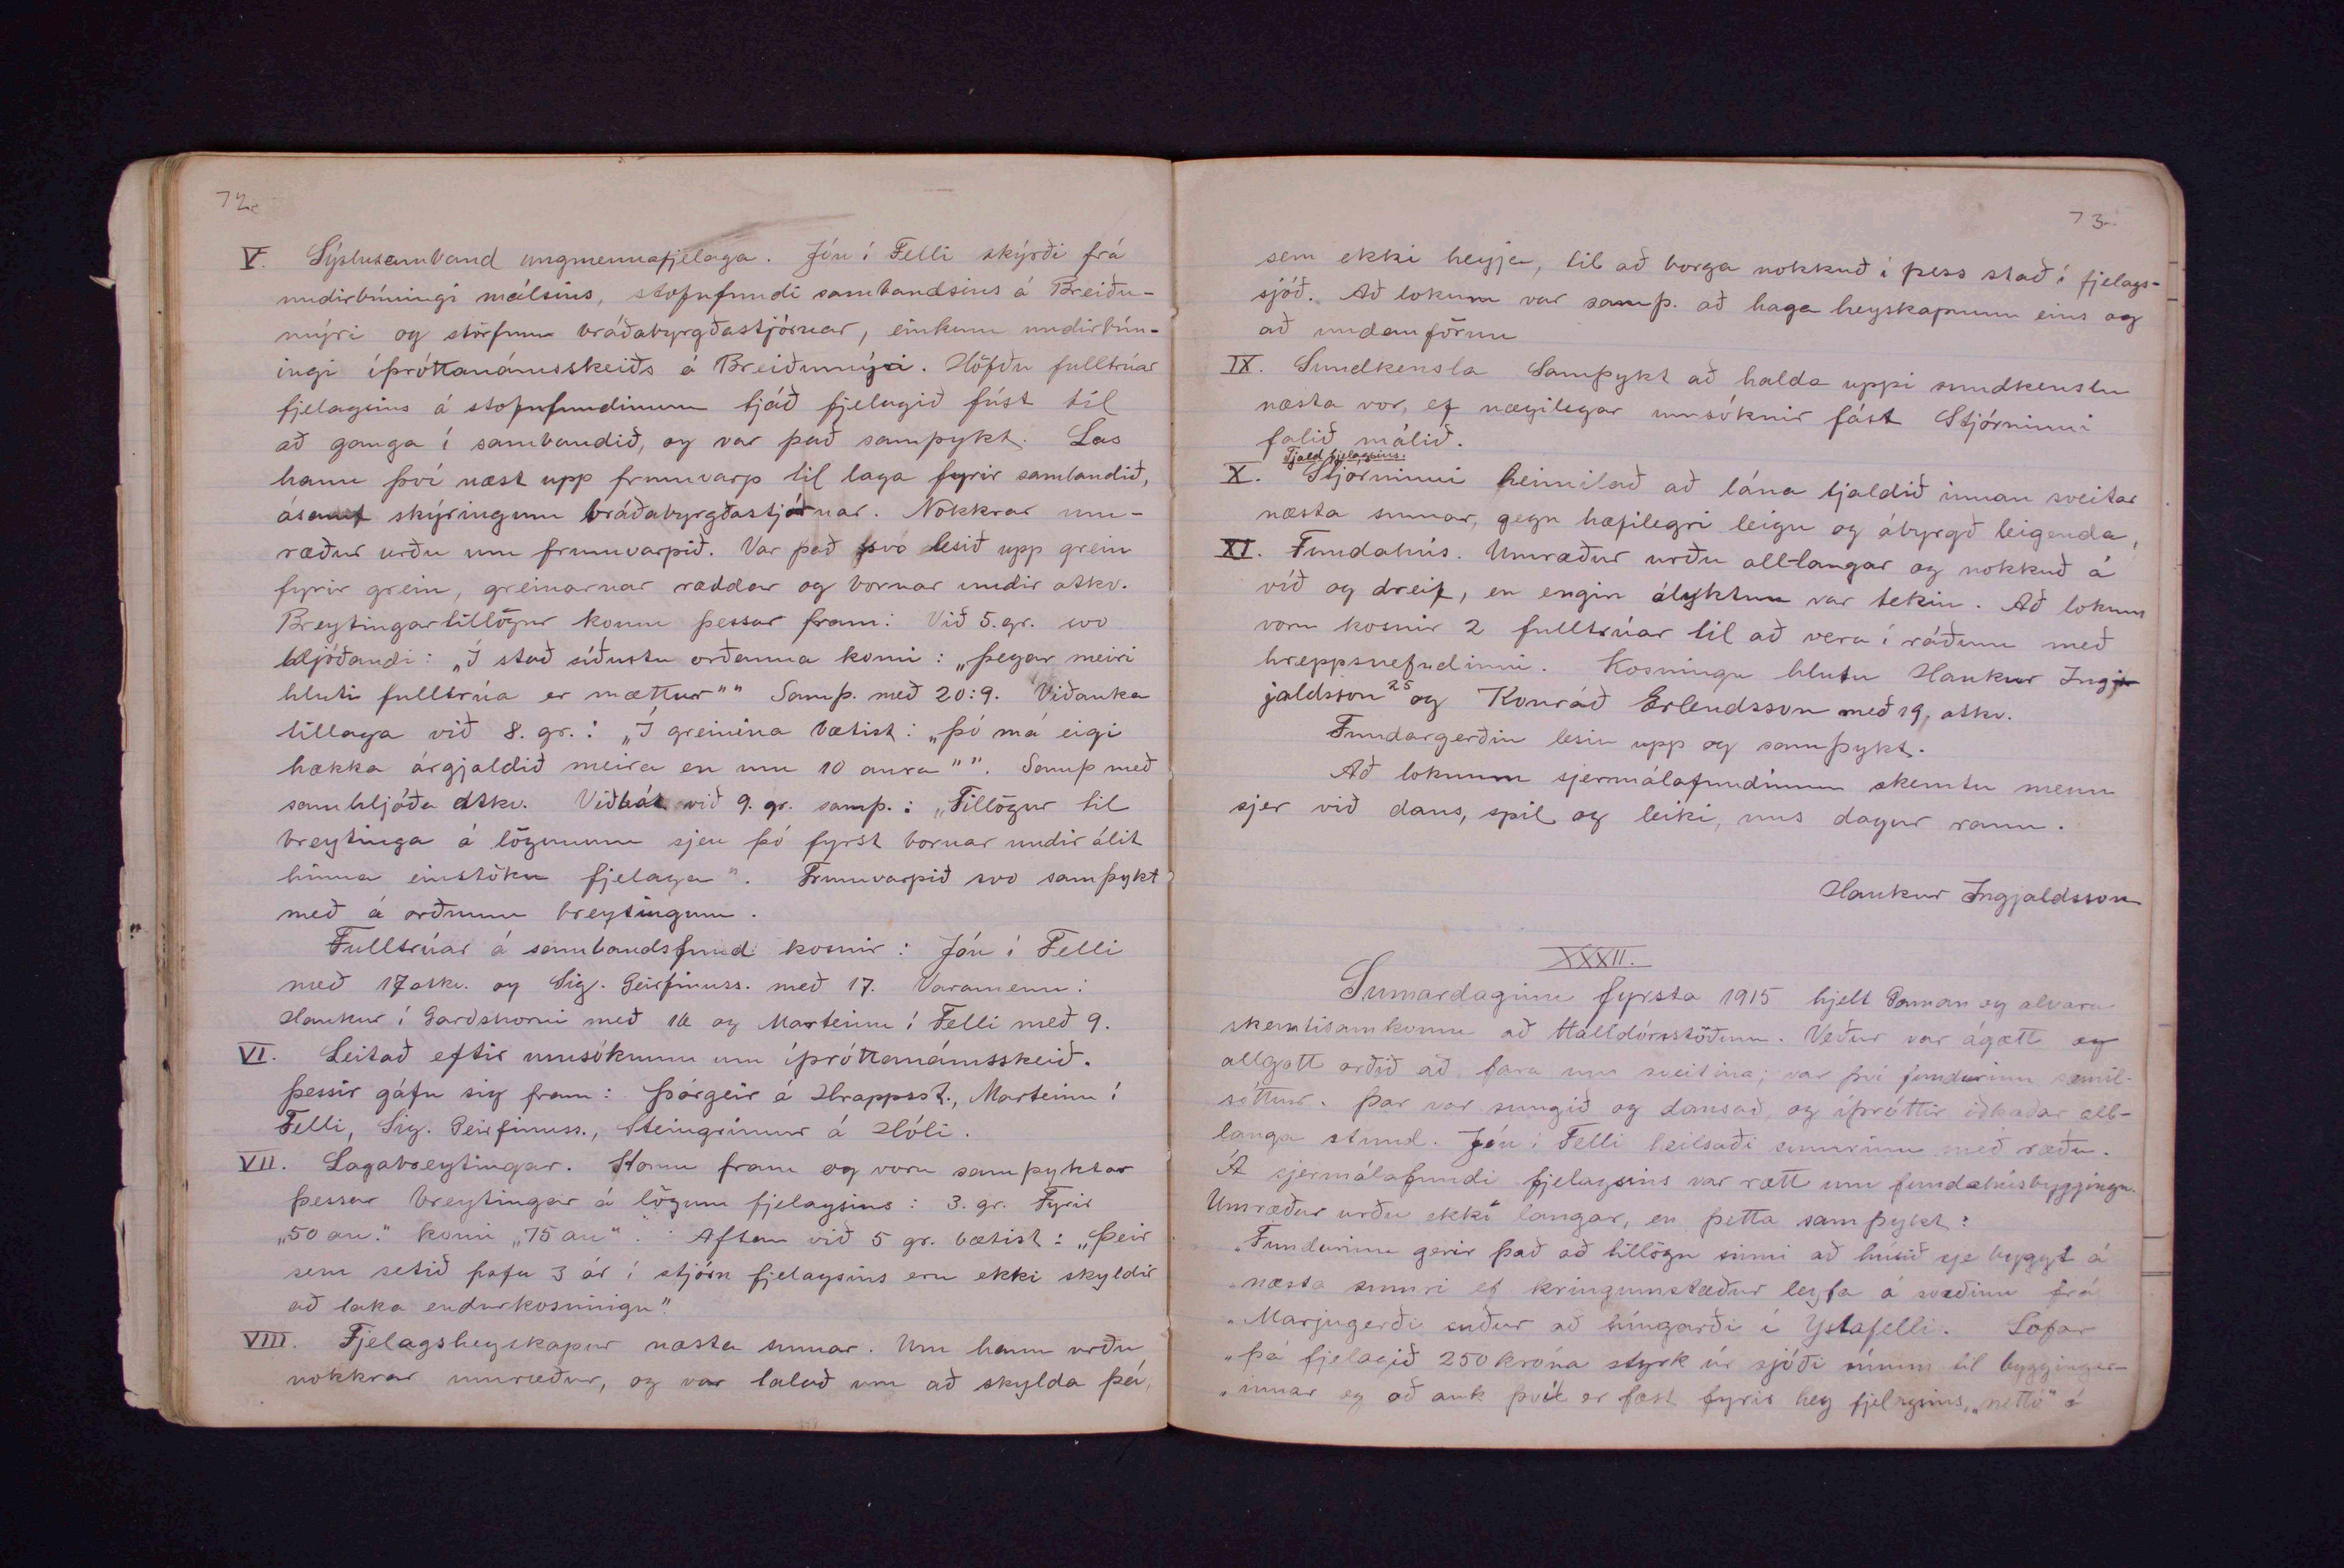 72.
V. Sýslusamband ungmennafjelaga. Jón í Felli skýrði frá
undirbúningi málsins, stofnfundi sambandsins á Breiðu-
mýri og störfum bráðabyrgðastjórnar, einkum undirbún-
ingi íþróttanámsskeiðs á Breiðumýri. Höfðu fulltrúar
fjelagsins á stofnfundinum tjáð fjelagið fúst til
að ganga í sambandið, og var það samþykt. Las
hann því næst upp frumvarp til laga fyrir sambandið,
ásamt skýringum bráðabyrgðastjórnar. Nokkrar um-
ræður urðu um frumvarpið. Var það svo lesið upp grein
fyrir grein, greinarnar ræddar og bornar undir atkv.
Breytingartillögur komu þessar fram: Við 5. gr. svo
hljóðandi: „Í stað síðustu orðanna komi: „þegar meiri
hluti fulltrúa er mættur"" Samþ. með 20:9. Viðauka
tillaga við 8. gr.: „Í greinina bætist: „þó má eigi
hækka árgjaldið meira en um 10 aura"". Samþ með
samhljóða atkv. Viðbót við 9. gr. samþ.: „Tillögur til
breytinga á lögunum sjeu þó fyrst bornar undir álit
hinna einstöku fjelaga". Frumvarpið svo samþykt
með á orðnum breytingum.
Fulltrúar á sambandsfund kosnir: Jón í Felli
með 17 atkv. og Sig. Geirfinnss. með 17. Varamenn:
Haukur í Garðshorni með og Marteinn í Felli með 9.
VI. Leitað eftir umsóknum um íþróttanámsskeið.
Þessir gáfu sig fram: Þórgeir á Hrappsst., Marteinn í
Felli, Sig. Geirfinnss., Steingrímur á Hóli.
VII. Lagabreytingar. Komu fram og voru samþyktar
þessar breytingar á lögum fjelagsins: 3. gr. Fyrir
„50 au." komi „75 au". Aftan við 5 gr. bætist: „Þeir
sem setið hafa 3 ár í stjórn fjelagsins eru ekki skyldir
að taka endurkosningu".
VIII. Fjelagsheyskapur næsta sumar. Um hann urðu
nokkrar umræður, og var talað um að skylda þá,
73.
sem ekki heyja, til að borga nokkuð í þess stað í fjelags-
sjóð. Að lokum var samþ. að haga heyskapnum eins og
að undanförnu
IX. Sundkensla Samþykt að halda uppi sundkenslu
næsta vor, ef nægilegar umsóknir fást Stjórninni
falið málið.
Tjald fjelagsins.
X. Stjórninni heimilað að lána tjaldið innan sveitar
næsta sumar, gegn hæfilegri leigu og ábyrgð leigenda,
XI. Fundahús. Umræður urðu all-langar og nokkuð á
víð og dreif, en engin ályktun var tekin. Að lokum
voru kosnir 2 fulltrúar til að vera í ráðum með
hreppsnefndinni. Kosningu hlutu Haukur Ing
jaldsson 25 og Konráð Erlendsson með 19, atkv.
Fundargerðin lesin upp og samþykt.
Að loknum sjermálafundinum skemtu menn
sjer við dans, spil og leiki, uns dagur rann.
Haukur Ingjaldsson
XXXII.
Sumardaginn fyrsta 1915 hjelt Gaman og alvara
skemtisamkomu að Halldórsstöðum. Veður var ágætt og
allgott orðið að fara um sveitina; var því fundurinn sæmil-
sóttur. Þar var sungið og dansað, og íþróttir iðkaðar all-
langa stund. Jón í Felli heilsaði sumrinu með ræðu.
Á sjermálafundi fjelagsins var rætt um fundahúsbyggingu.
Umræður urðu ekki langar, en þetta samþykt:
„Fundurinn gerir það að tillögu sinni að húsið sje bygt á
„næsta sumri ef kringumstæður leyfa á svæðinu frá
„Marjugerði suður að túngarði í Ystafelli. Lofar
„þá fjelagið 250 króna styrk úr sjóði sínum til byggingar-
„innar og að auk því er fæst fyrir hey fjelagsins, „nettó" á